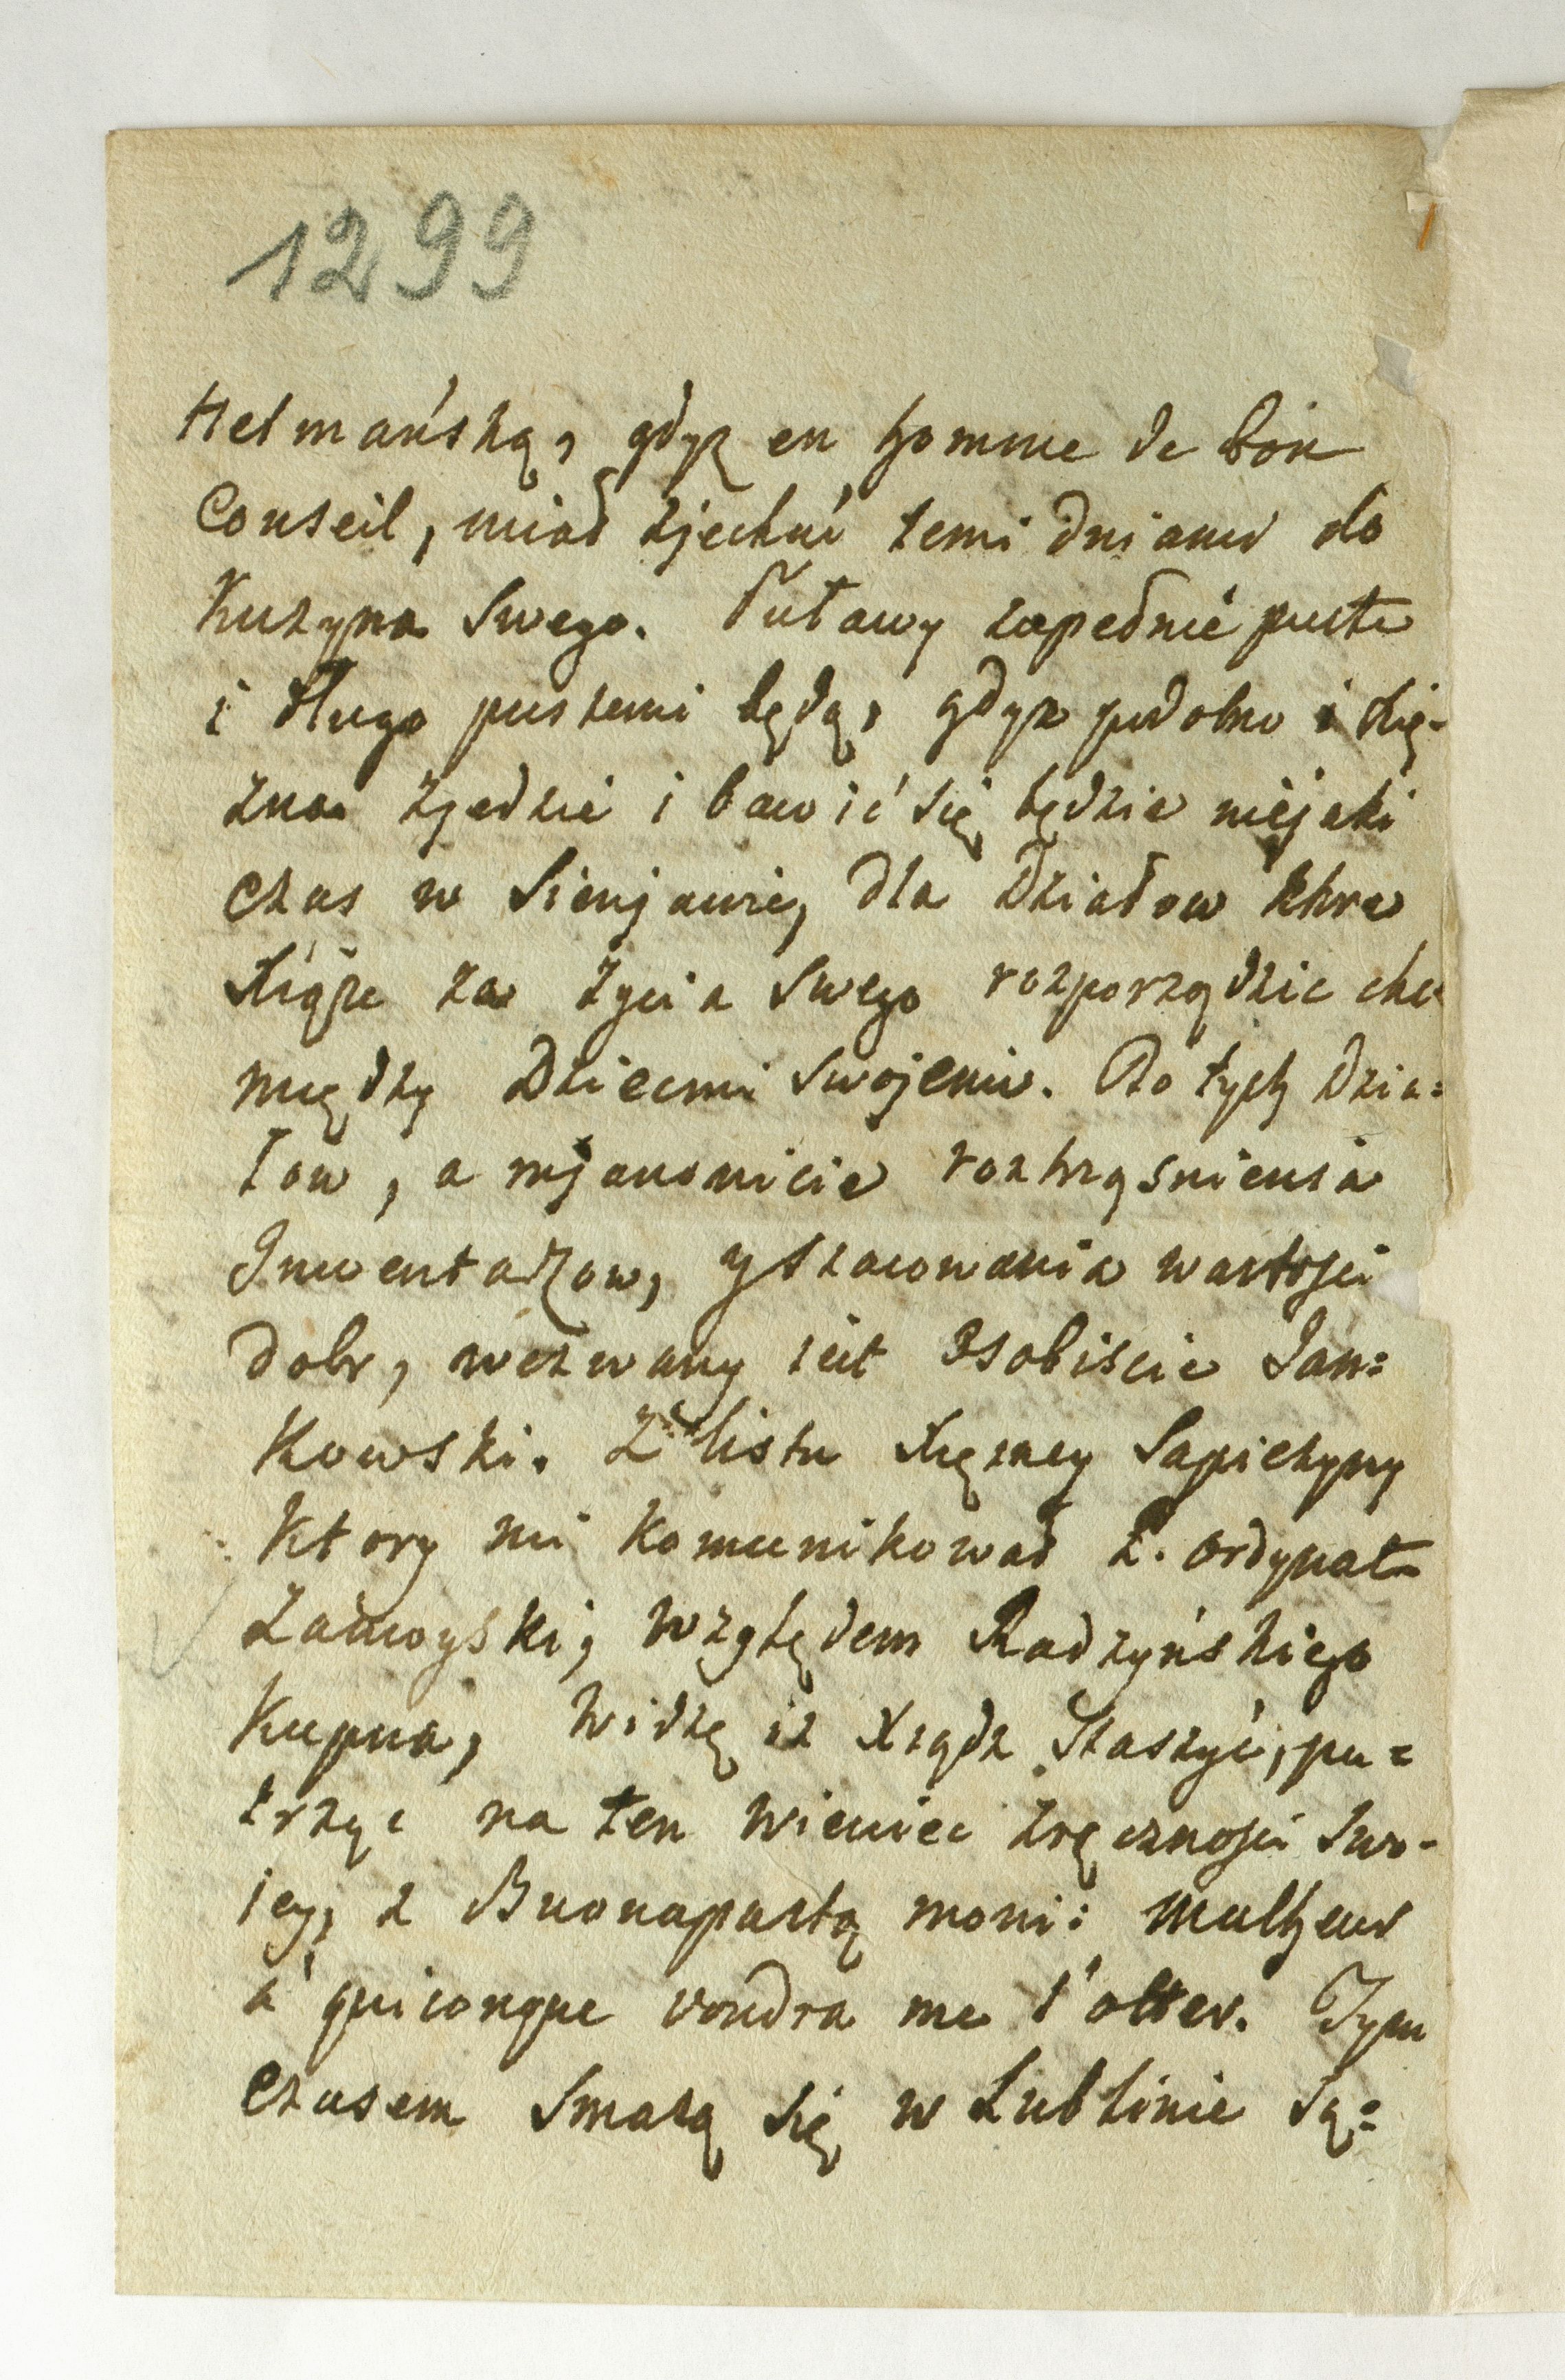 1299
Hetmańską, gdyż en homme de bon
Conseil, miał zjechać temi dniami do
Kuzyna Swego. Puławy zapełnie puste
i długo pustemi będą, gdyż podobno i Xię-
żna zjedzie i bawić się będzie niejaki
czas w Sieniawie, dla działow ktore
Xiąże za życia Swego rozporządzic chce
między Dziecmi Swojemi. Do tych dzia=
łow, a mianowicie roztrząsnienia
Inwentarzow, y szacowania wartości
dobr, wezwany iest osobiscie Jan=
Kowski. Z listu Xiężney Sapieżyny
Ktory mi Komunikował P. ordynat
Zamoyski, względem Radzyńskiego
Kupna, widzę iż Xsiądz Staszyc, pa=
trząc na ten wieniec zręczności Swo-
iey, z Buonapartą mowi: malheur
à quiconque voudra me l'olter. Tym
czasem Smażą Się w Lublinie Są=